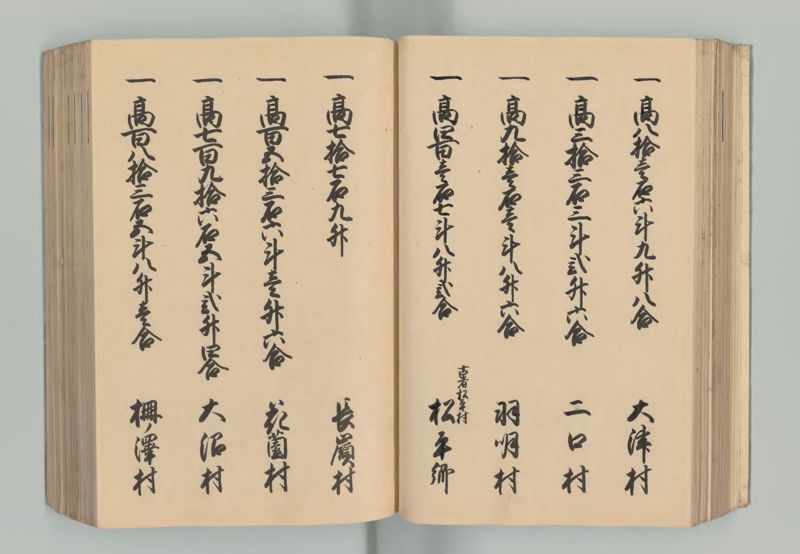 一 高八拾壱石六斗九升八合 大津村
一 高三拾三石三斗弐升六合 二口村
一 高九拾壱石壱斗八升六合 羽明村
一 高四百壱石七斗八升弐合 古者松平村 松平郷
一 高七拾七石九升 長嶺村
一 高百五拾三石六斗壱升六合 花園村
一 高七百九拾六石五斗弐升四合 大沼村
一 高百八拾三石五斗八升壱合 柵ノ澤村